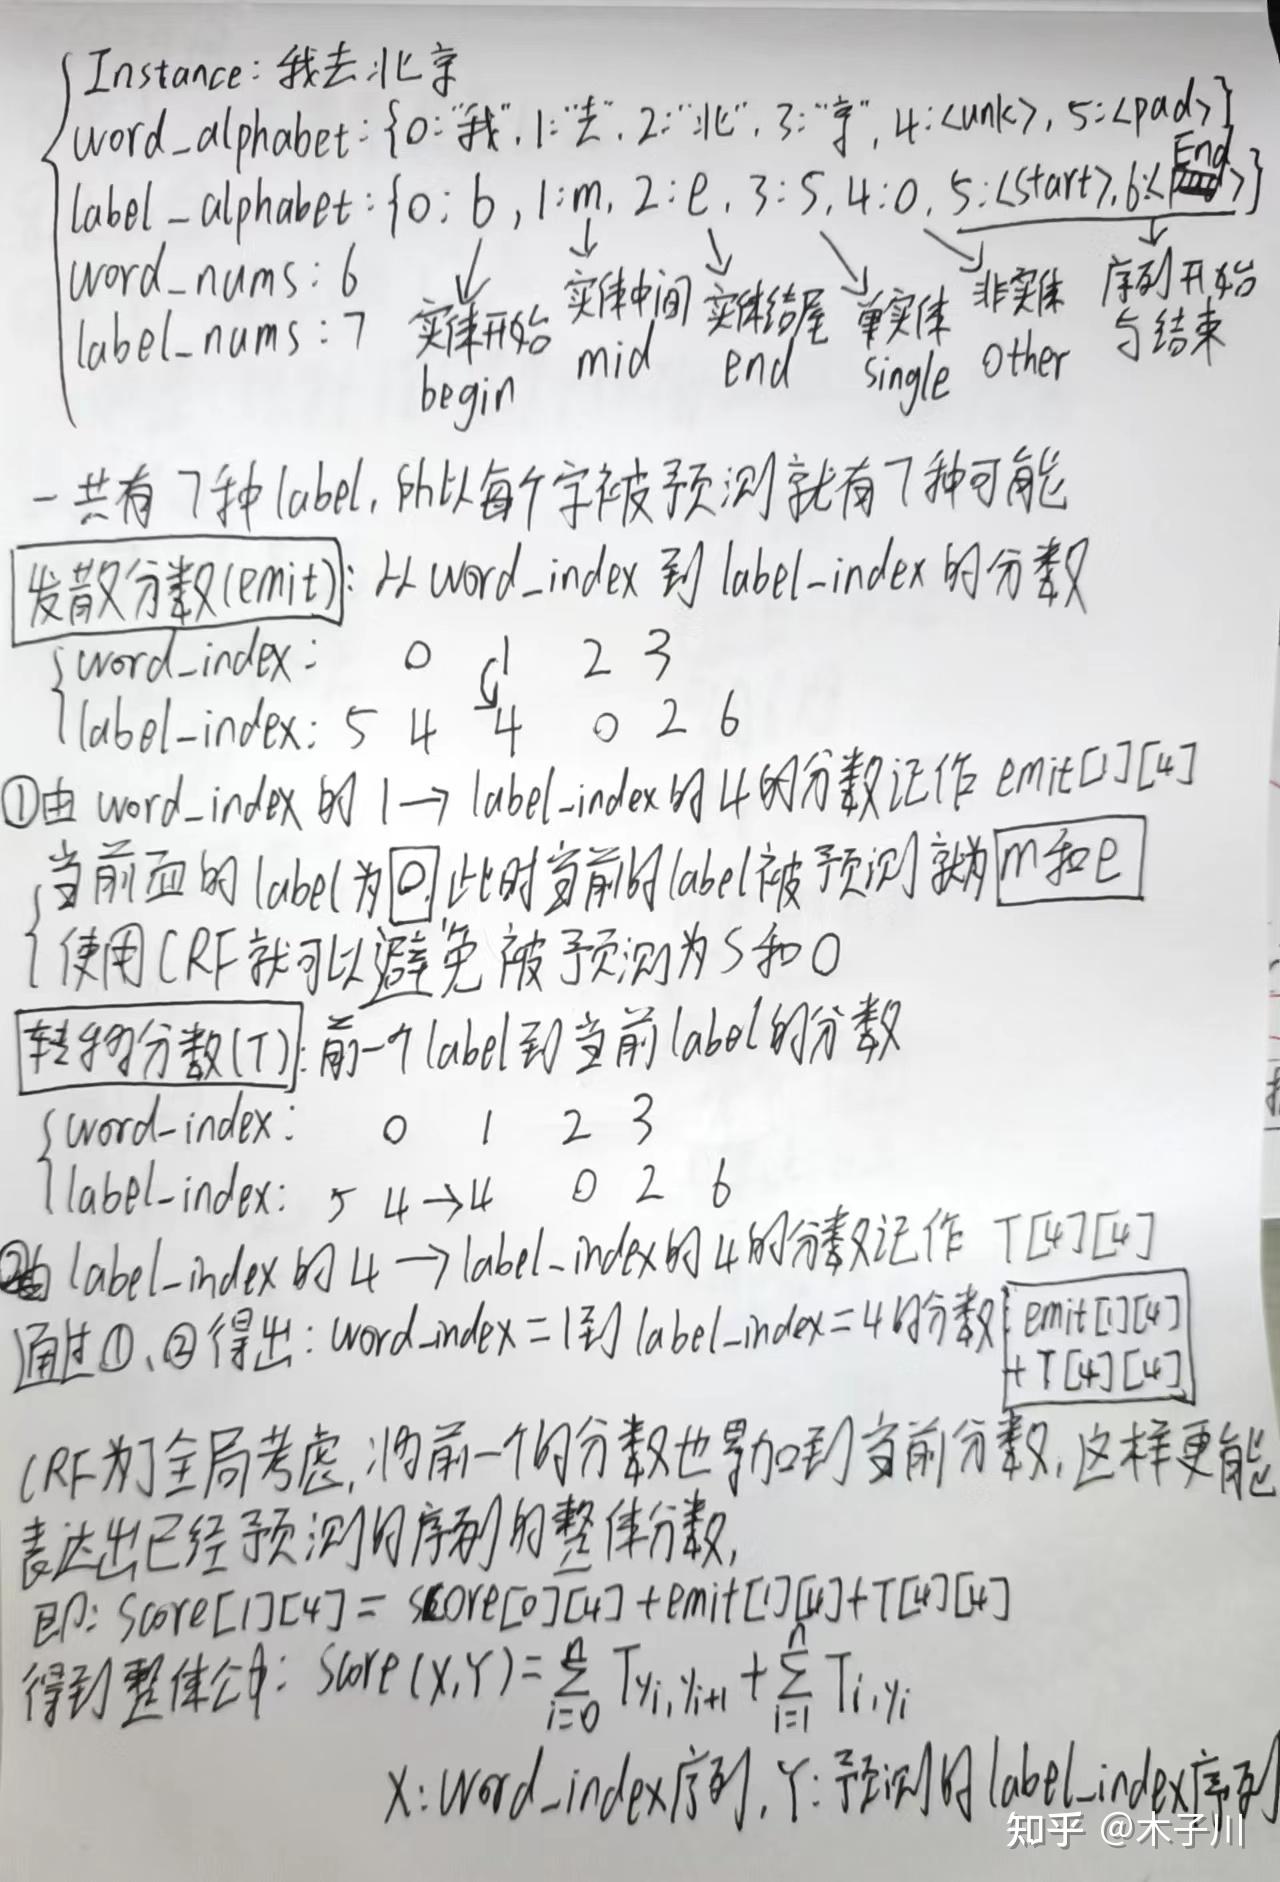 Instance: 我去北京
word_alphabet: {0:"我", 1:"去", 2:"北", 3:"京", 4:<unk>, 5:<pad>}
label_alphabet: {0: b, 1:m, 2:e, 3:S, 4:O, 5:<start>, 6:<End>}
word_nums: 6
label_nums: 7
实体开始 实体中间 实体结尾 单实体 非实体 序列开始与结束
begin mid end single other
一共有7种label, 所以每个字被预测就有7种可能
发散分数(emit): 从word_index到label_index的分数
word_index: 0 1 2 3
label_index: 5 4 4 0 2 6
①由word_index的1→label_index的4的分数记作emit[1][4]
当前面的label为0,此时当前的label被预测就为m和e
使用CRF就可以避免被预测为S和O
转移分数(T): 前一个label到当前label的分数
word_index: 0 1 2 3
label_index: 5 4→4 0 2 6
②由label_index的4→label_index的4的分数记作T[4][4]
通过①、②得出: word_index=1到label_index=4的分数: emit[1][4]
+T[4][4]
CRF为了全局考虑,将前一个的分数也累加到当前分数,这样更能
表达出已经预测的序列的整体分数,
即: score[1][4]=score[0][4]+emit[1][4]+T[4][4]
得到整体公式: score(X,Y)=∑_{i=0}^{n} T_{yi,yi+1}+∑_{i=1}^{n} T_{i,yi}
X:word_index序列, Y:预测的label_index序列
知乎 @木子川